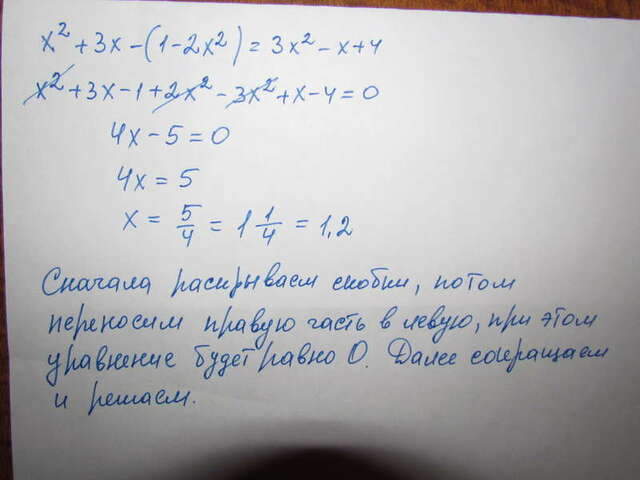 x² + 3x - (1 - 2x²) = 3x² - x + 4
x² + 3x - 1 + 2x² - 3x² + x - 4 = 0
4x - 5 = 0
4x = 5
x = 5/4 = 1 1/4 = 1,2
Сначала раскрываем скобки, потом
переносим правую часть в левую, при этом
уравнение будет равно 0. Далее сокращаем
и решаем.